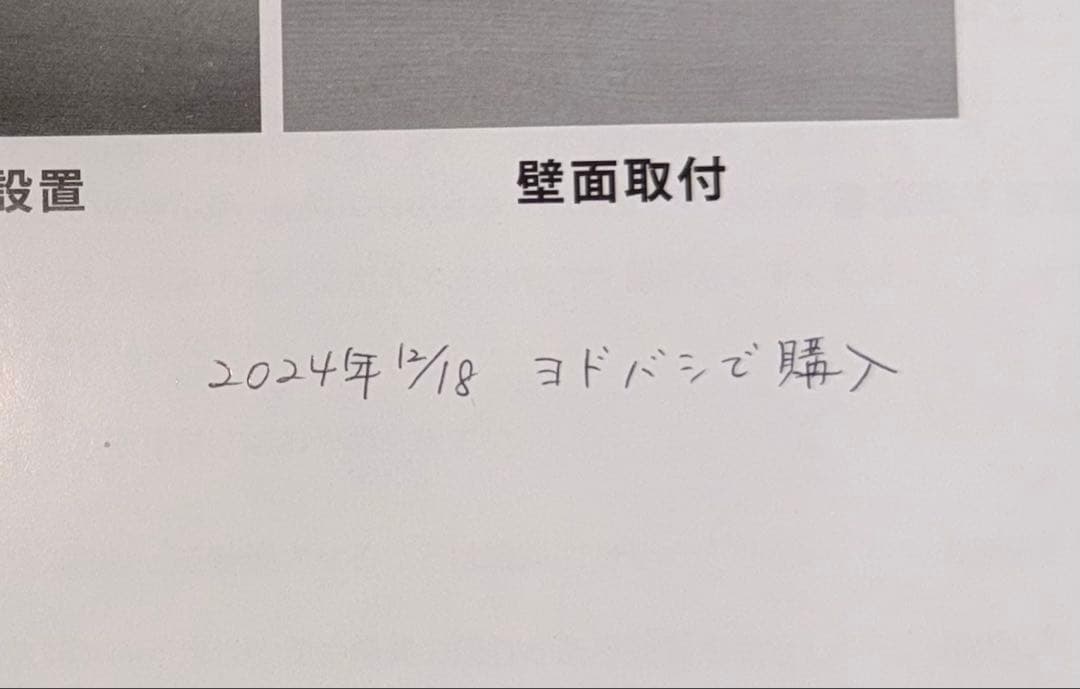 設置
壁面取付
2024年12/18 ヨドバシで購入